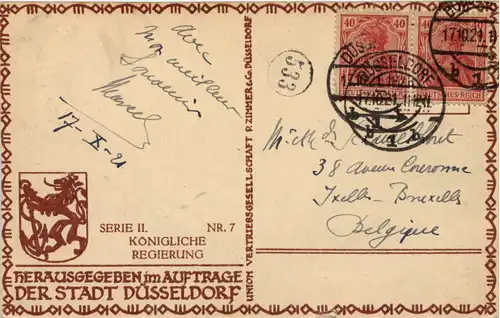 Avec
mon meilleur
Souvenir
17-X-21
SERIE II. NR. 7
KÖNIGLICHE
REGIERUNG
HERAUSGEGEBEN im AUFTRAGE
DER STADT DÜSSELDORF
UNION VERTRIEBSGESELLSCHAFT P. ZIMMER & Co. DÜSSELDORF
533
40 40 40
DEUTSCHES REICH
DÜSSELDORF
17.10.21
b 1 b
17.10.21
38 Avenue Couronne
Ixelles - Bruxelles
Belgique